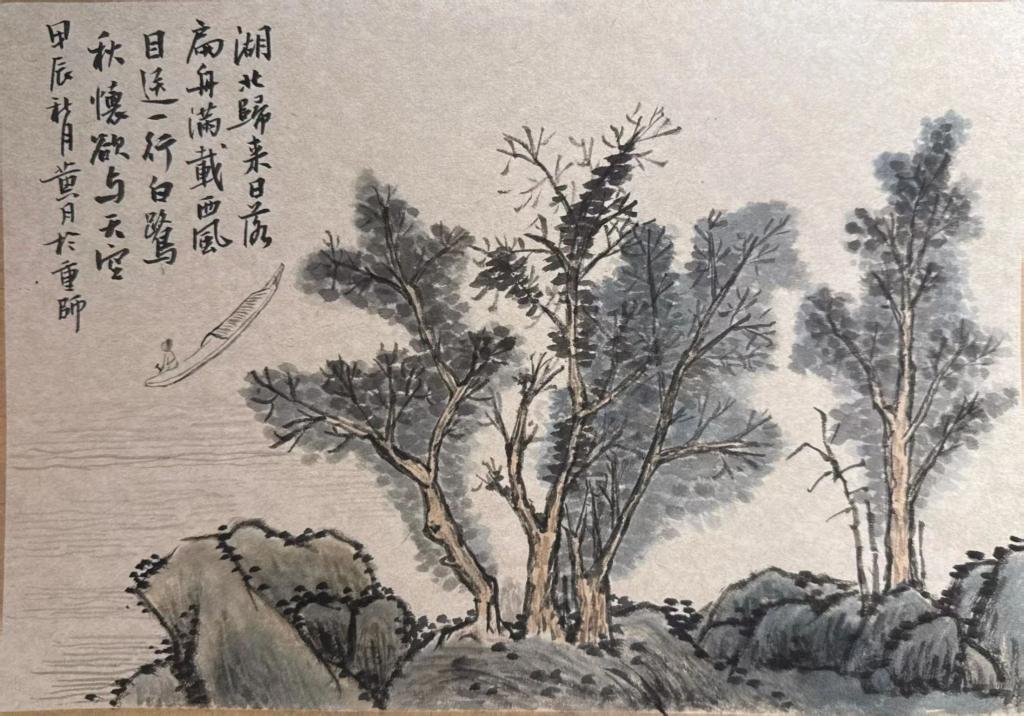 湖北歸来日落
扁舟滿載西風
目送一行白鷺
秋懷欲与天空
甲辰秋月黃月於重師